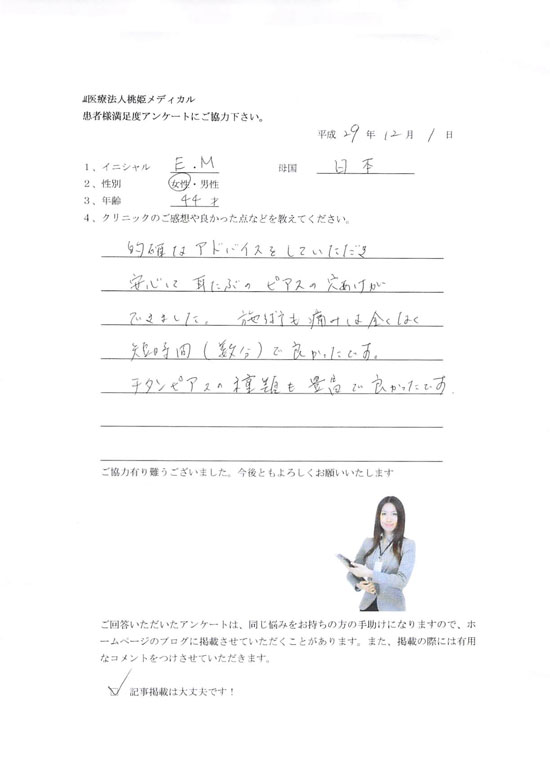 医療法人桃姫メディカル
患者様満足度アンケートにご協力下さい。
平成 29 年 12 月 1 日
1、イニシャル E.M 母国 日本
2、性別 女性・男性
3、年齢 44才
4、クリニックのご感想や良かった点などを教えてください。
的確なアドバイスをしていただき
安心して耳たぶのピアスの穴あけが
できました。施術も痛みは全くなく
短時間(数分)で良かったです。
チタンピアスの種類も豊富で良かったです.
ご協力有り難うございました。今後ともよろしくお願いいたします
ご回答いただいたアンケートは、同じ悩みをお持ちの方の手助けになりますので、ホ
ームページのブログに掲載させていただくことがあります。また、掲載の際には有用
なコメントをつけさせていただきます。
記事掲載は大丈夫です!